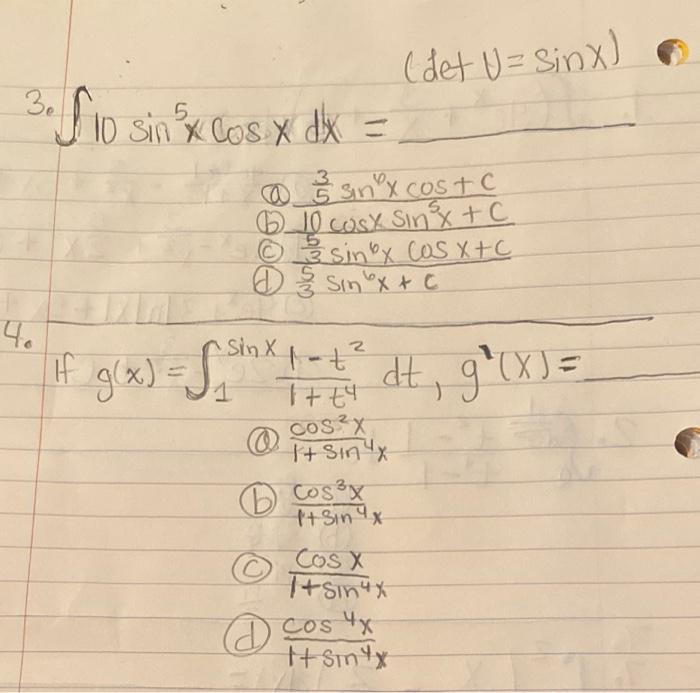 (det U = sinx)
3. ∫ 10 sin⁵x cos x dx = ______
ⓐ 3/5 sin⁶x cos + C
ⓑ 10 cosx sin⁵x + C
ⓒ 5/3 sin⁶x cos x + C
ⓓ 5/3 sin⁶x + C
4.
If g(x) = ∫₁^(sin x) (1-t²)/(1+t⁴) dt, g'(x) = ______
ⓐ cos²x/(1+sin⁴x)
ⓑ cos³x/(1+sin⁴x)
ⓒ cos x/(1+sin⁴x)
ⓓ cos⁴x/(1+sin⁴x)